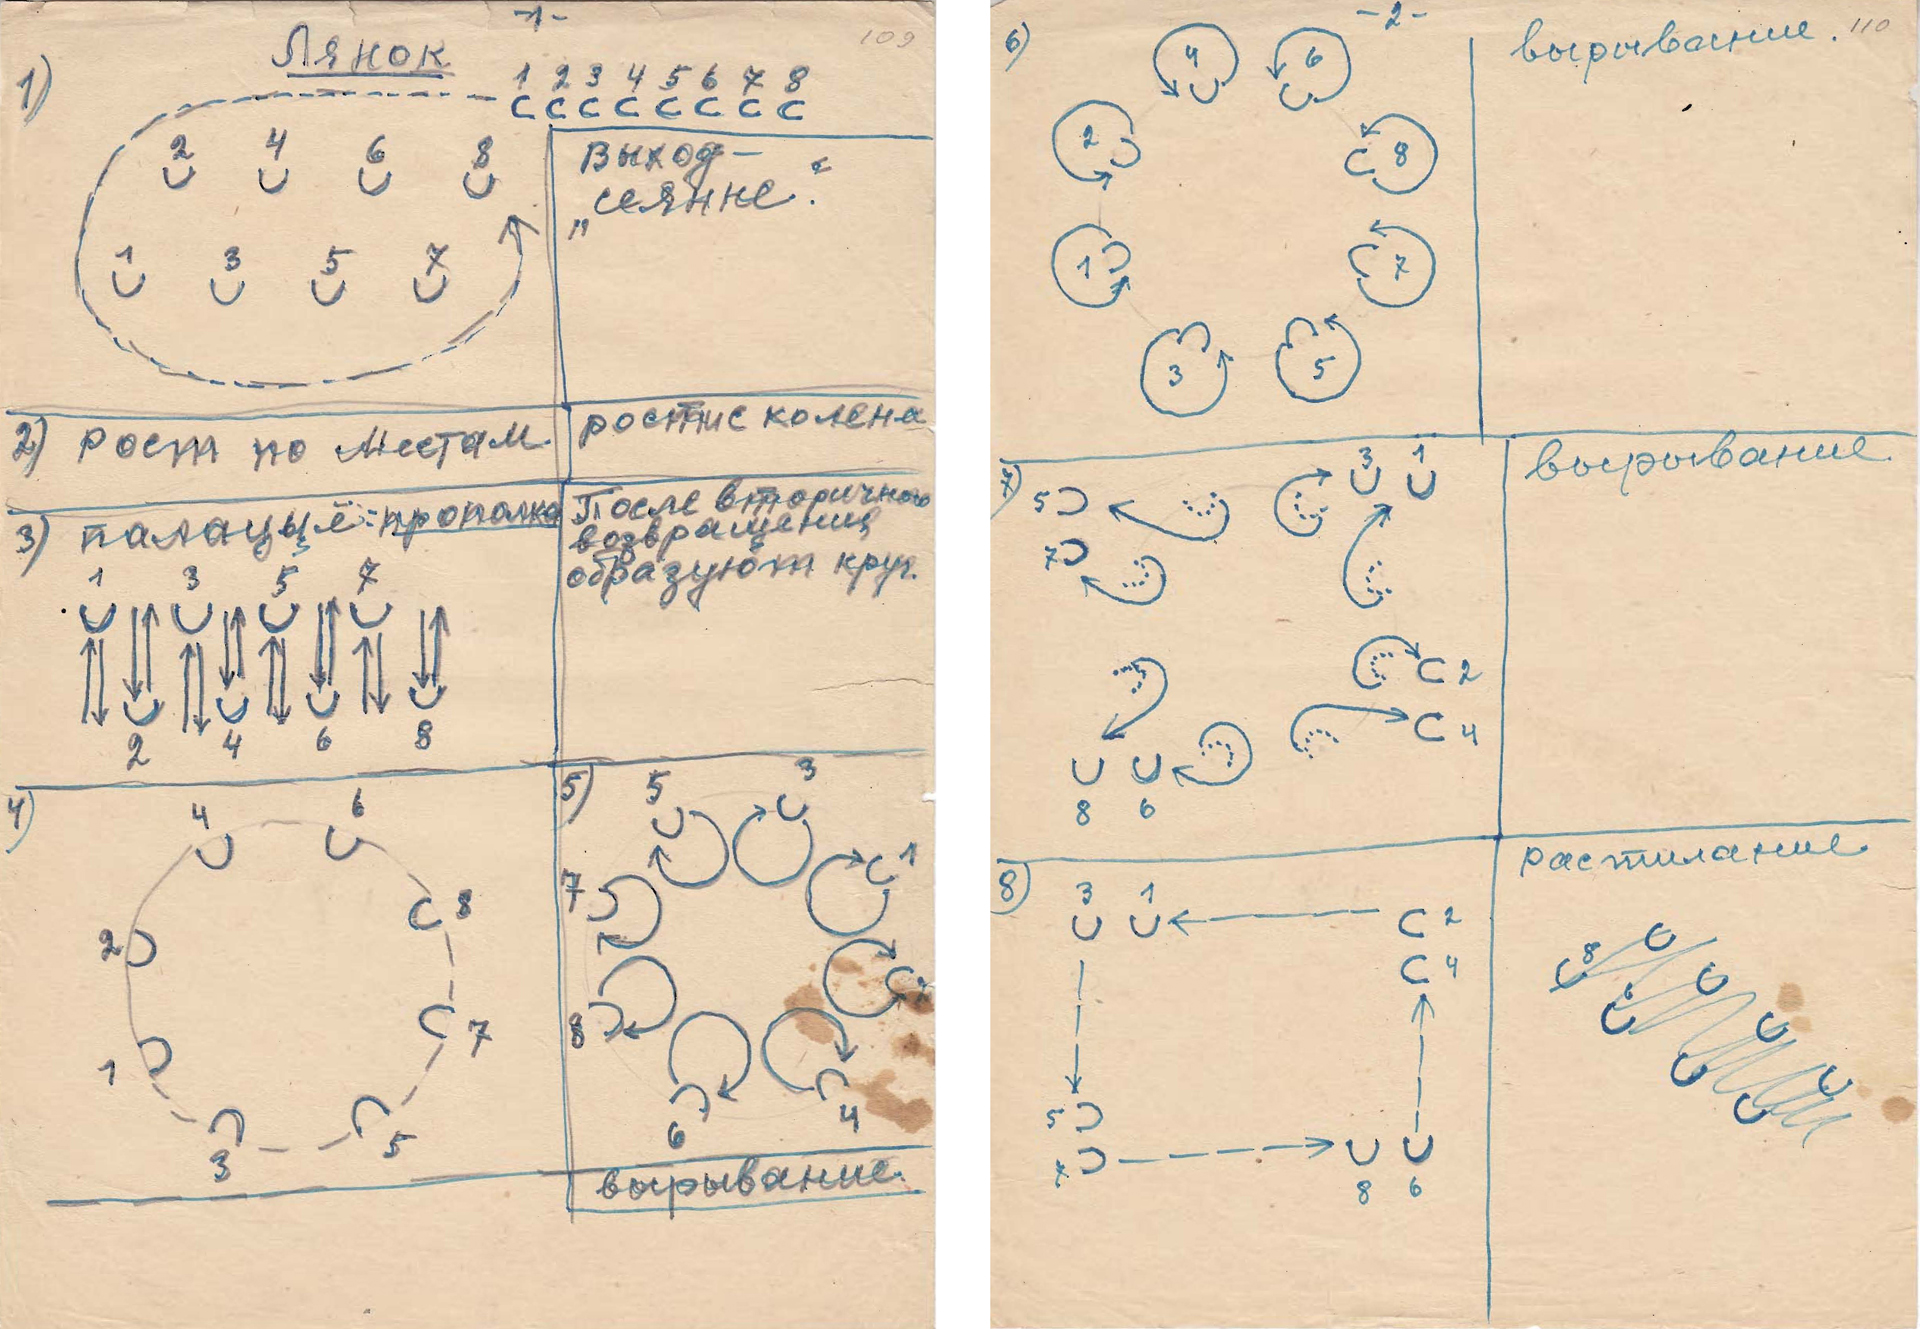 -1-
109
Лянок
1)
1 2 3 4 5 6 7 8
2 4 6 8
1 3 5 7
Выход -
„сеянне".
2) рост по местам.
ростпис колена
3) палацьё: прополка
После вторичного
возвращения
образуют круг.
1 3 5 7
2 4 6 8
4)
4 6
2 8
1 7
3 5
5)
5 3
7 1
8 2
6 4
вырывание.
-2-
110
6)
вырывание.
4 6
2 8
1 7
3 5
7)
вырывание.
3 1
5
7
2
4
8 6
8)
растилание.
3 1 2
4
5
7
8 6
8
6